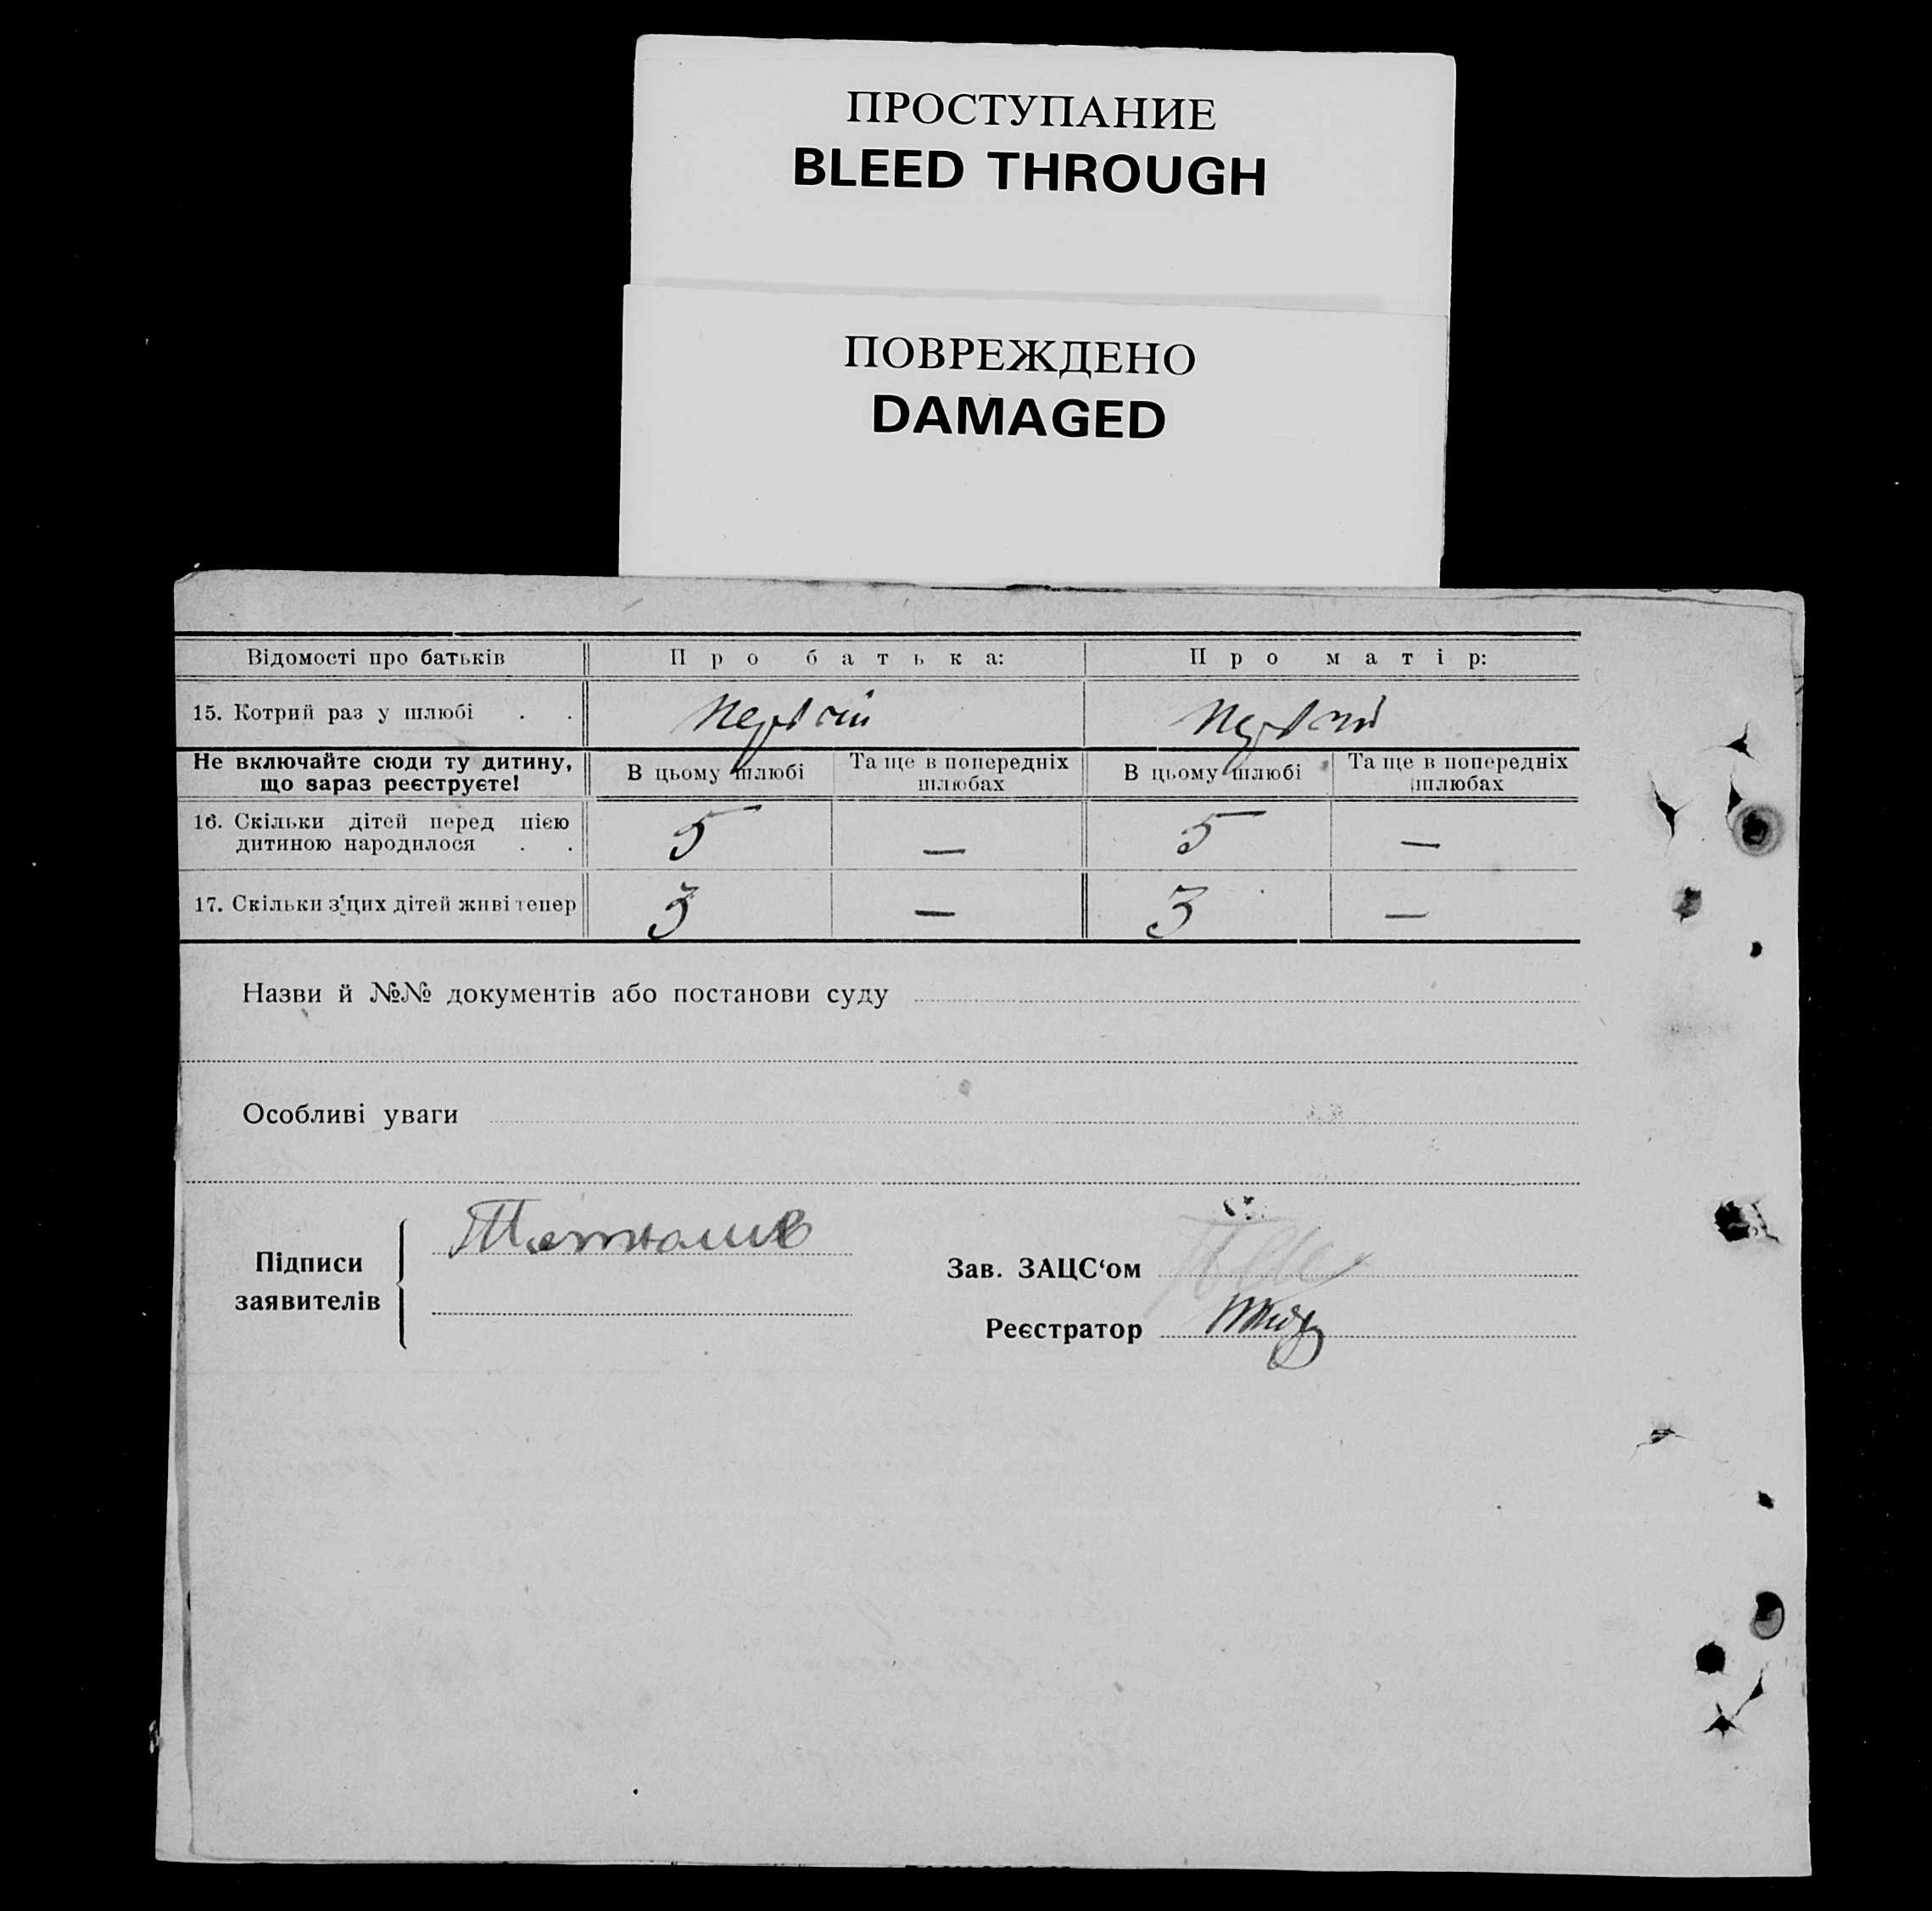 ПРОСТУПАНИЕ
BLEED THROUGH
ПОВРЕЖДЕНО
DAMAGED
Відомості про батьків Про батька: Про матір:
15. Котрий раз у шлюбі . . Первий Первий
Не включайте сюди ту дитину,
що зараз реєструєте!
В цьому шлюбі
Та ще в попередніх
шлюбах
В цьому шлюбі
Та ще в попередніх
шлюбах
16. Скільки дітей перед цією
дитиною народилося . .
5 — 5 —
17. Скільки з'цих дітей живі тепер 3 — 3 —
Назви й №№ документів або постанови суду
Особливі уваги
Підписи
заявителів
Зав. ЗАЦС‘ом
Реєстратор